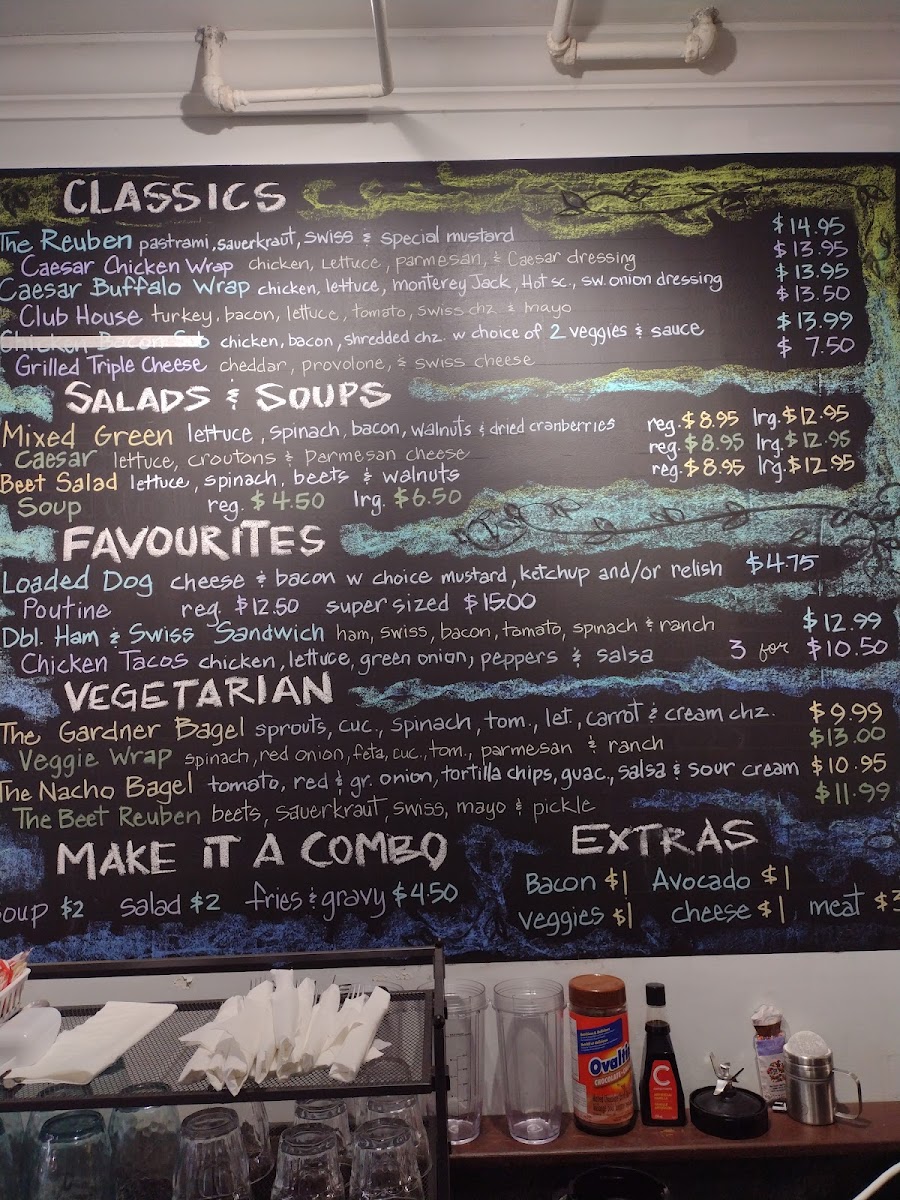 CLASSICS
The Reuben pastrami, sauerkraut, swiss & special mustard $14.95
Caesar Chicken Wrap chicken, lettuce, parmesan, & Caesar dressing $13.95
Caesar Buffalo Wrap chicken, lettuce, monterey Jack, Hot sc., sw. onion dressing $13.95
Club House turkey, bacon, lettuce, tomato, swiss chz. & mayo $13.50
Chicken Bacon Sub chicken, bacon, shredded chz. w choice of 2 veggies & sauce $13.99
Grilled Triple Cheese cheddar, provolone, & swiss cheese $7.50
SALADS & SOUPS
Mixed Green lettuce, spinach, bacon, walnuts & dried cranberries reg. $8.95 lrg. $12.95
Caesar lettuce, croutons & Parmesan cheese reg. $8.95 lrg. $12.95
Beet Salad lettuce, spinach, beets & walnuts reg. $8.95 lrg. $12.95
Soup reg. $4.50 lrg. $6.50
FAVOURITES
Loaded Dog cheese & bacon w choice mustard, ketchup and/or relish $4.75
Poutine reg. $12.50 super sized $15.00
Dbl. Ham & Swiss Sandwich ham, swiss, bacon, tomato, spinach & ranch $12.99
Chicken Tacos chicken, lettuce, green onion, peppers & salsa 3 for $10.50
VEGETARIAN
The Gardner Bagel sprouts, cuc., spinach, tom., let., carrot & cream chz. $9.99
Veggie Wrap spinach, red onion, feta, cuc., tom., parmesan & ranch $13.00
The Nacho Bagel tomato, red & gr. onion, tortilla chips, guac., salsa & sour cream $10.95
The Beet Reuben beets, sauerkraut, swiss, mayo & pickle $11.99
MAKE IT A COMBO
soup $2 salad $2 fries & gravy $4.50
EXTRAS
Bacon $1 Avocado $1
veggies $1 cheese $1 meat $3
Ovalti
C